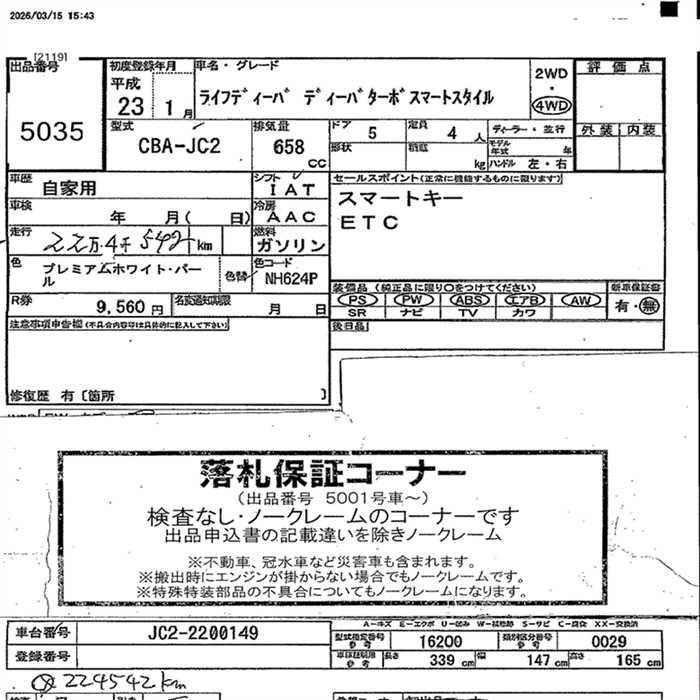 2026/03/15 15:43
[2119]
出品番号
5035
初度登録年月
平成
23 1 月
車名・グレード
ライフディーバ ディーバターボスマートスタイル
2WD
・
4WD
評価点
外装 内装
型式
CBA-JC2
排気量
658
CC
ドア 5
定員 4 人
形状
積載 kg
ディーラー・並行
モデル年式 年
ハンドル 左・右
車歴
自家用
シフト
IAT
セールスポイント(正常に機能するものに限ります)
スマートキー
ETC
車検
年 月( 日)
冷房
AAC
走行
22万4千542 km
燃料
ガソリン
色
プレミアムホワイト・パール
色替
色コード
NH624P
装備品 (純正品に限り○をつけてください)
PS PW ABS エアB AW
SR ナビ TV カワ
新車保証書
有・無
R券
9,560 円
名変通知期限
月 日
後日品
注意事項申告欄(不具合内容等は具体的に記入して下さい)
修復歴 有〔箇所 〕
落札保証コーナー
(出品番号 5001号車~)
検査なし・ノークレームのコーナーです
出品申込書の記載違いを除きノークレーム
※不動車、冠水車など災害車も含まれます。
※搬出時にエンジンが掛からない場合でもノークレームです。
※特殊特装部品の不具合についてもノークレームになります。
A-キズ E-エクボ U-凹み W-補修跡 S-サビ C-腐食 XX-交換済
車台番号
JC2-2200149
型式指定番号
参考
16200
類別区分番号
参考
0029
登録番号
参考
長さ 339 cm
幅 147 cm
高さ 165 cm
224542km